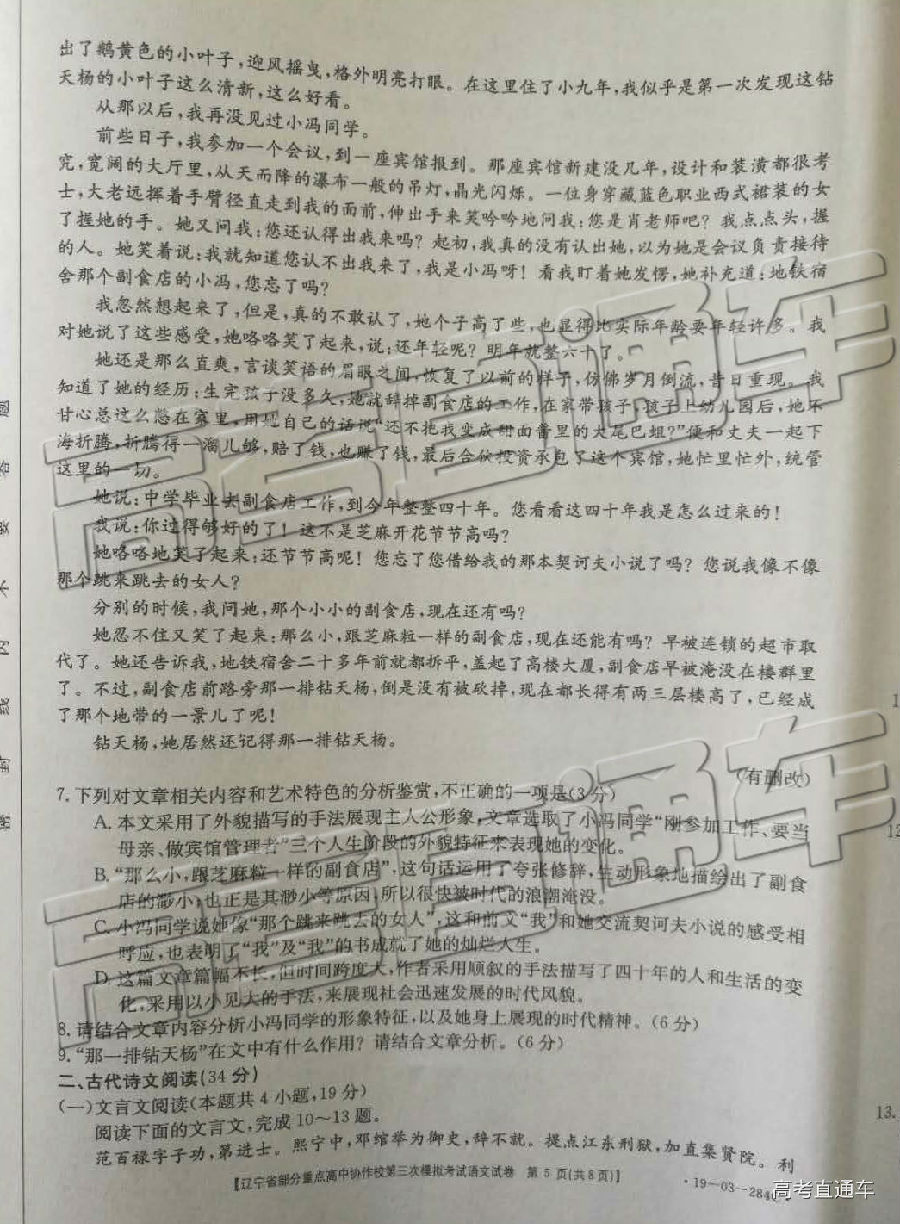 出了鹅黄色的小叶子,迎风摇曳,格外明亮打眼。在这里住了小九年,我似乎是第一次发现这钻
天杨的小叶子这么清新,这么好看。
从那以后,我再没见过小冯同学。
前些日子,我参加一个会议,到一座宾馆报到。那座宾馆新建没几年,设计和装潢都很考
究,宽阔的大厅里,从天而降的瀑布一般的吊灯,晶光闪烁。一位身穿藏蓝色职业西式裙装的女
士,大老远挥着手臂径直走到我的面前,伸出手来笑吟吟地问我:您是肖老师吧?我点点头,握
了握她的手。她又问我:您还认得出我来吗?起初,我真的没有认出她,以为她是会议负责接待
的人。她笑着说:我就知道您认不出我来了,我是小冯呀!看我盯着她发愣,她补充道:地铁宿
舍那个副食店的小冯,您忘了吗?
我忽然想起来了,但是,真的不敢认了,她个子高了些,也显得比实际年龄要年轻许多。我
对她说了这些感受,她咯咯笑了起来,说:还年轻呢?明年就整六十了。
她还是那么直爽,言谈笑语的眉眼之间,恢复了以前的样子,仿佛岁月倒流,昔日重现。我
知道了她的经历:生完孩子没多久,她就辞掉副食店的工作,在家带孩子,孩子上幼儿园后,她不
甘心总这么憋在家里,用她自己的话说“还不把我变成甜面酱里的大尾巴蛆?”便和丈夫一起下
海折腾,折腾得一溜儿够,赔了钱,也赚了钱,最后合伙投资承包了这个宾馆,她忙里忙外,统管
这里的一切。
她说:中学毕业去副食店工作,到今年整整四十年。您看看这四十年我是怎么过来的!
我说:你过得够好的了!这不是芝麻开花节节高吗?
她咯咯地笑了起来:还节节高呢!您忘了您借给我的那本契诃夫小说了吗?您说我像不像
那个跳来跳去的女人?
分别的时候,我问她,那个小小的副食店,现在还有吗?
她忍不住又笑了起来:那么小,跟芝麻粒一样的副食店,现在还能有吗?早被连锁的超市取
代了。她还告诉我,地铁宿舍二十多年前就都拆平,盖起了高楼大厦,副食店早被淹没在楼群里
了。不过,副食店前路旁那一排钻天杨,倒是没有被砍掉,现在都长得有两三层楼高了,已经成
了那个地带的一景儿了呢!
钻天杨,她居然还记得那一排钻天杨。
(有删改)
7.下列对文章相关内容和艺术特色的分析鉴赏,不正确的一项是(3分)
A.本文采用了外貌描写的手法展现主人公形象,文章选取了小冯同学“刚参加工作、要当
母亲、做宾馆管理者”三个人生阶段的外貌特征来表现她的变化。
B.“那么小,跟芝麻粒一样的副食店”,这句话运用了夸张修辞,生动形象地描绘出了副食
店的渺小,也正是其渺小等原因,所以很快被时代的浪潮淹没。
C.小冯同学说她像“那个跳来跳去的女人”,这和前文“我”和她交流契诃夫小说的感受相
呼应,也表明了“我”及“我”的书成就了她的灿烂人生。
D.这篇文章篇幅不长,但时间跨度大,作者采用顺叙的手法描写了四十年的人和生活的变
化,采用以小见大的手法,来展现社会迅速发展的时代风貌。
8.请结合文章内容分析小冯同学的形象特征,以及她身上展现的时代精神。(6分)
9.“那一排钻天杨”在文中有什么作用?请结合文章分析。(6分)
二、古代诗文阅读(34分)
(一)文言文阅读(本题共4小题,19分)
阅读下面的文言文,完成10～13题。
范百禄字子功,第进士。熙宁中,邓绾举为御史,辞不就。提点江东刑狱,加直集贤院。利
【辽宁省部分重点高中协作校第三次模拟考试语文试卷 第5页(共8页)】
·19—03—284
密 封 线 内 不 要 答 题
1
12
13.
高考直通车
高考直通车
高考直通车